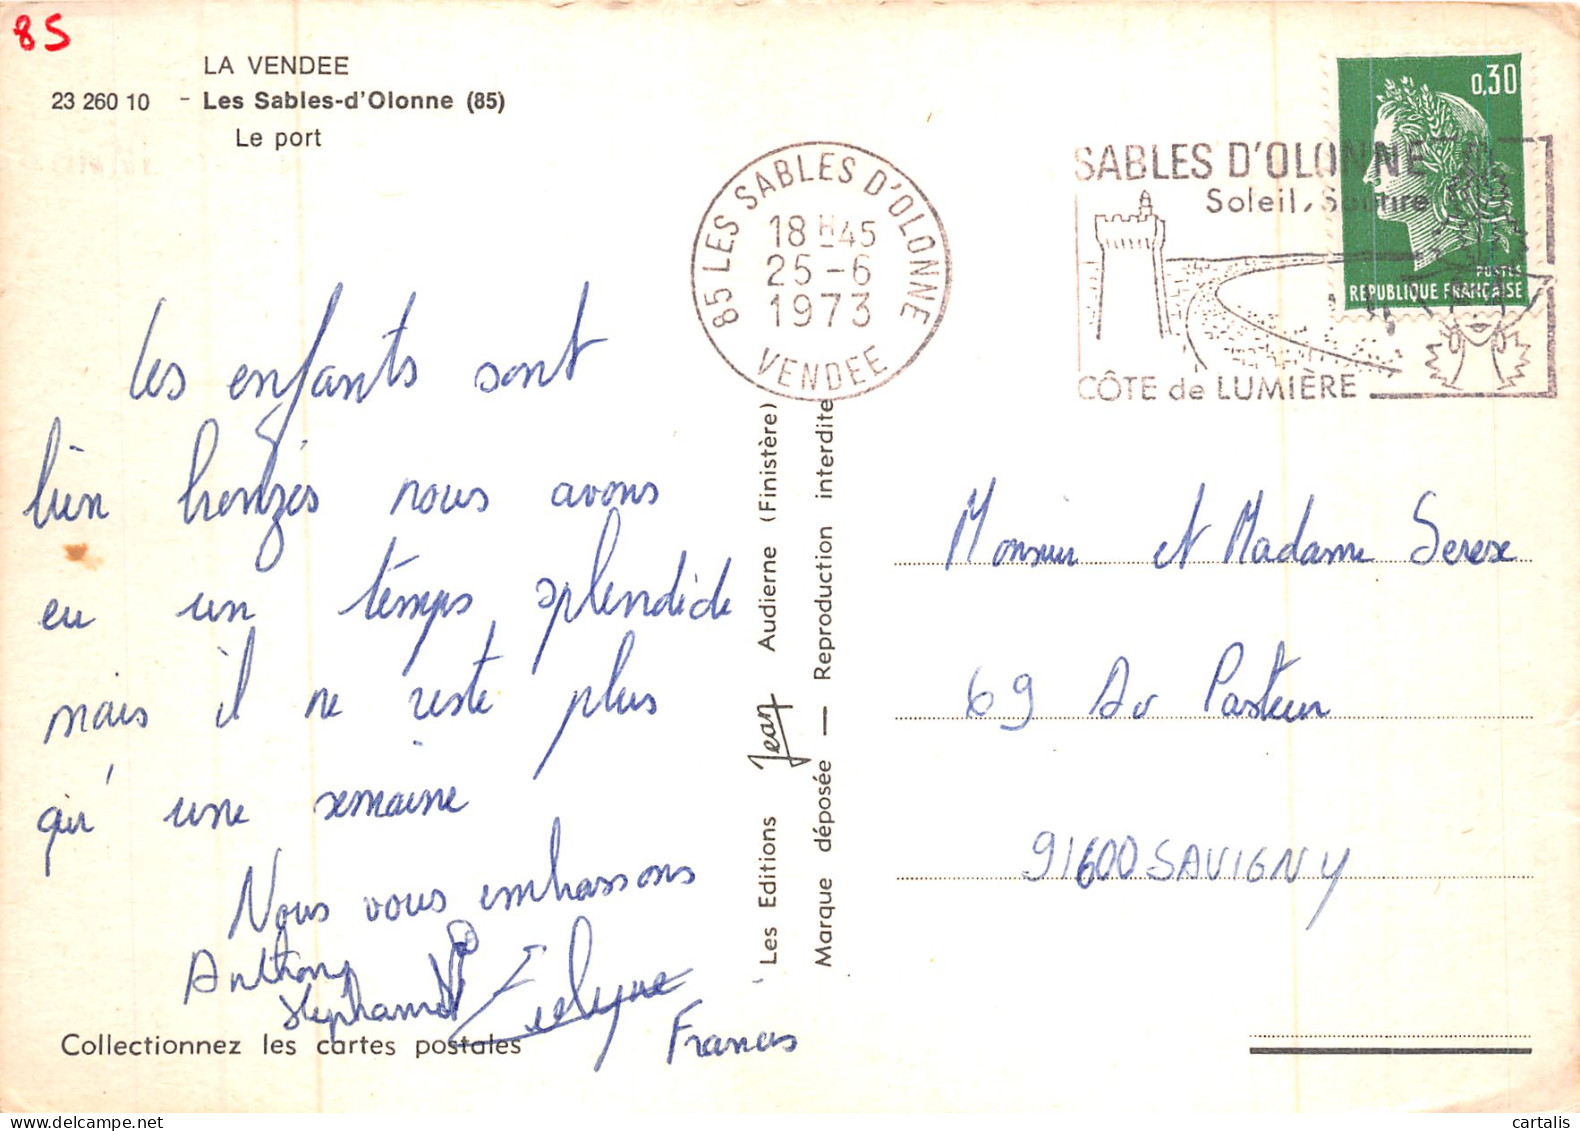 85
LA VENDEE
23 260 10 - Les Sables-d'Olonne (85)
Le port
85 LES SABLES D'OLONNE
18 H 45
25 - 6
1973
VENDEE
SABLES D'OLONNE
Soleil, Sourire
CÔTE de LUMIÈRE
0,30
POSTES
REPUBLIQUE FRANÇAISE
Les enfants sont
bien bronzés nous avons
eu un temps splendide
mais il ne reste plus
qu'une semaine
Nous vous embrassons
Anthony
Stéphanie
Evelyne
Francis
Collectionnez les cartes postales
Les Editions Jean Audierne (Finistère)
Marque déposée — Reproduction interdite
Monsieur et Madame
69 Av Pasteur
91600 SAVIGNY
cartalis